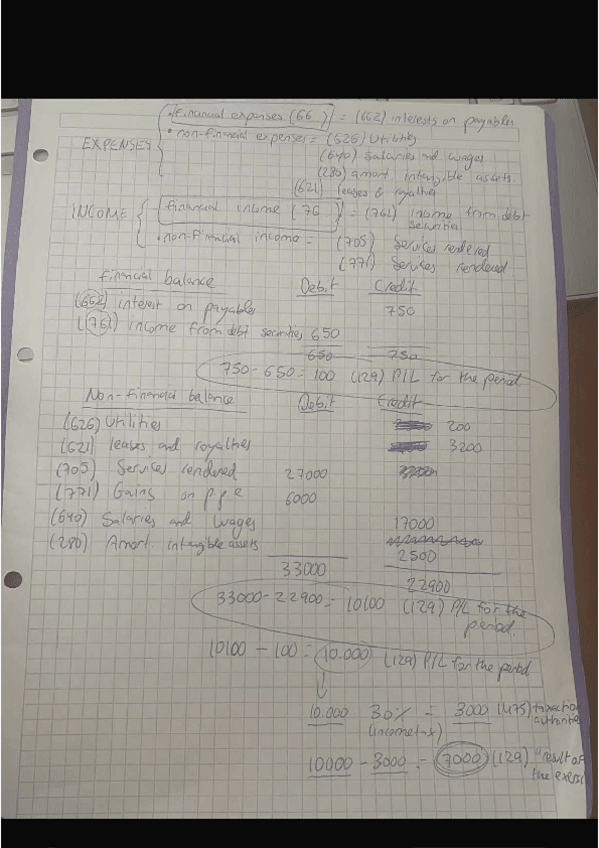 • Financial expenses (66 ) = (662) interests on payables
EXPENSES
• non-financial expenses = (626) Utilities
(640) Salaries and wages
(280) amort intangible assets.
(621) leases & royalties
INCOME
financial income (76 ) = (761) income from debt
securities
• non-financial income = (705) Services rendered
(771) Services rendered
Financial balance Debit Credit
(662) interest on payables 750
(761) income from debt securities 650
650 750
750 - 650 = 100 (129) P/L for the period
Non-financial balance Debit Credit
(626) Utilities 200
(621) leases and royalties 3200
(705) Services rendered 27000
(771) Gains on p p e 6000
(640) Salaries and wages 17000
(280) Amort. intangible assets 2500
33000 22900
33000 - 22900 = 10100 (129) P/L for the
period.
10100 - 100 = 10.000 (129) P/L for the period
10.000 30% = 3000 (475) taxation
(income tax) authorities
10000 - 3000 = 7000 (129) "result of
the exerci